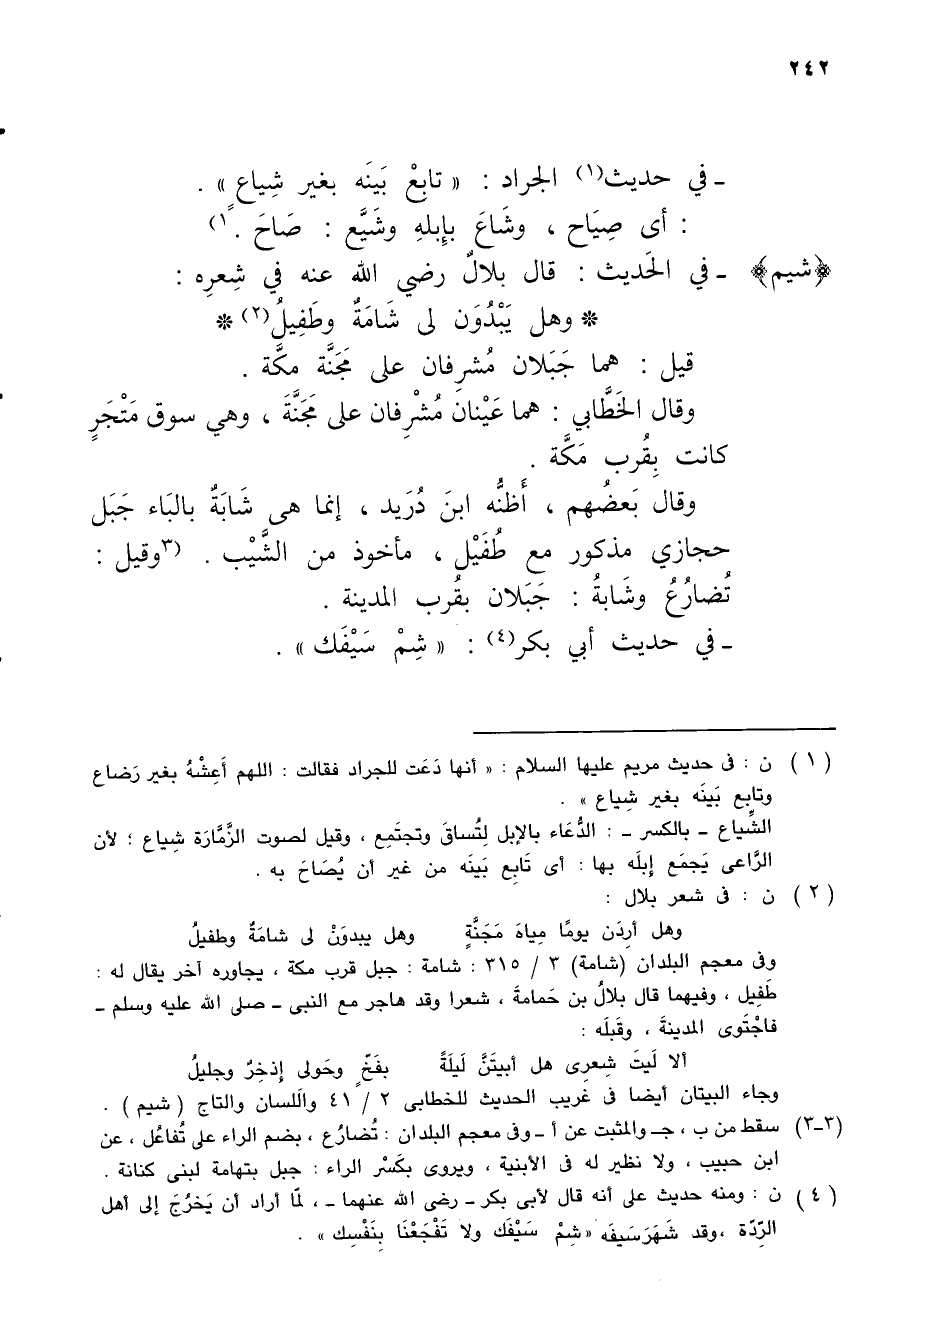 ٢٤٢
ـ في حديث(١) الجراد : « تابعْ بَينَه بغير شِياعٍ » .
: أى صِيَاح ، وشَاعَ بإبلهِ وشَيَّع : صَاحَ .١)
﴿شيم﴾ ـ في الحَديث : قال بلالٌ رضي الله عنه في شِعرِه :
* وهل يَبْدُوَن لى شَامَةٌ وطَفِيلُ(٢) *
قيل : هما جَبَلان مُشرِفان على مَجَنَّة مكَّة .
وقال الخَطَّابي : هما عَيْنان مُشْرِفان على مَجَنَّةَ ، وهي سوق مَتْجَرٍ
كانت بِقُرب مَكَّة .
وقال بَعضُهم ، أَظنُّه ابنَ دُرَيد ، إنما هى شَابَةٌ بالبَاء جَبَل
حجازي مذكور مع طُفَيْل ، مأخوذ من الشَّيْب . (٣وقيل :
تُضارُعُ وشَابةُ : جَبَلان بقُرب المدينة .
ـ في حديث أبي بكر(٤) : « شِمْ سَيْفَك » .
(١) ن : فى حديث مريم عليها السلام : « أنها دَعَت للجراد فقالت : اللهم أَعِشْهُ بغير رَضاع
وتابِع بَينَه بغير شِياع » .
الشِّياع ـ بالكسر ـ : الدُّعَاء بالإبل لِتُساقَ وتجتَمِع ، وقيل لصوت الزَّمَّارَة شِياع ؛ لأن
الرَّاعى يَجمَع إبلَه بها : أى تَابِع بَينَه من غير أن يُصَاحَ به .
(٢) ن : فى شعر بلال :
وهل أردَن يومًا مِياهَ مَجَنَّةٍ وهل يبدوَنْ لى شامَةٌ وطفيلُ
وفى معجم البلدان (شامة) ٣ / ٣١٥ : شامة : جبل قرب مكة ، يجاوره آخر يقال له :
طَفِيل ، وفيهما قال بلالُ بن حَمامةَ ، شعرا وقد هاجر مع النبى ـ صلى الله عليه وسلم ـ
فاجْتَوى المدينةَ ، وقَبلَه :
ألا لَيتَ شِعرِى هل أبيتَنَّ لَيلَةً بفَخٍّ وحَولى إذخِرٌ وجليلُ
وجاء البيتان أيضا فى غريب الحديث للخطابى ٢ / ٤١ واللسان والتاج (شيم) .
(٣-٣) سقط من ب ، جـ والمثبت عن أ ـ وفى معجم البلدان : تُضارُع ، بضم الراء على تُفاعُل ، عن
ابن حبيب ، ولا نظير له فى الأبنية ، ويروى بكَسْر الراء : جبل بتهامة لبنى كنانة .
(٤) ن : ومنه حديث على أنه قال لأبى بكر ـ رضى الله عنهما ـ ، لمّا أراد أن يَخرُجَ إلى أهل
الرِّدَّة ،وقد شَهَرَسَيفَه «شِمْ سَيْفَك ولا تَفْجَعْنَا بِنَفْسِك» .